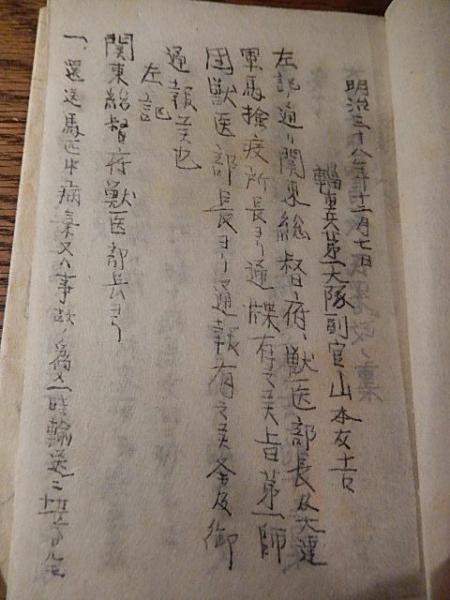 明治三十八年十二月七日
輜重兵第一大隊副官山本友吉
左記ノ通リ関東総督府獣医部長及大連
軍馬検疫所長ヨリ通牒有之候旨第一師
団獣医部長ヨリ通報有之候条及御
通報候也
左記
関東総督府獣医部長ヨリ
一、還送馬匹中病ノ為又ハ事故ノ為メ一時輸送ニ